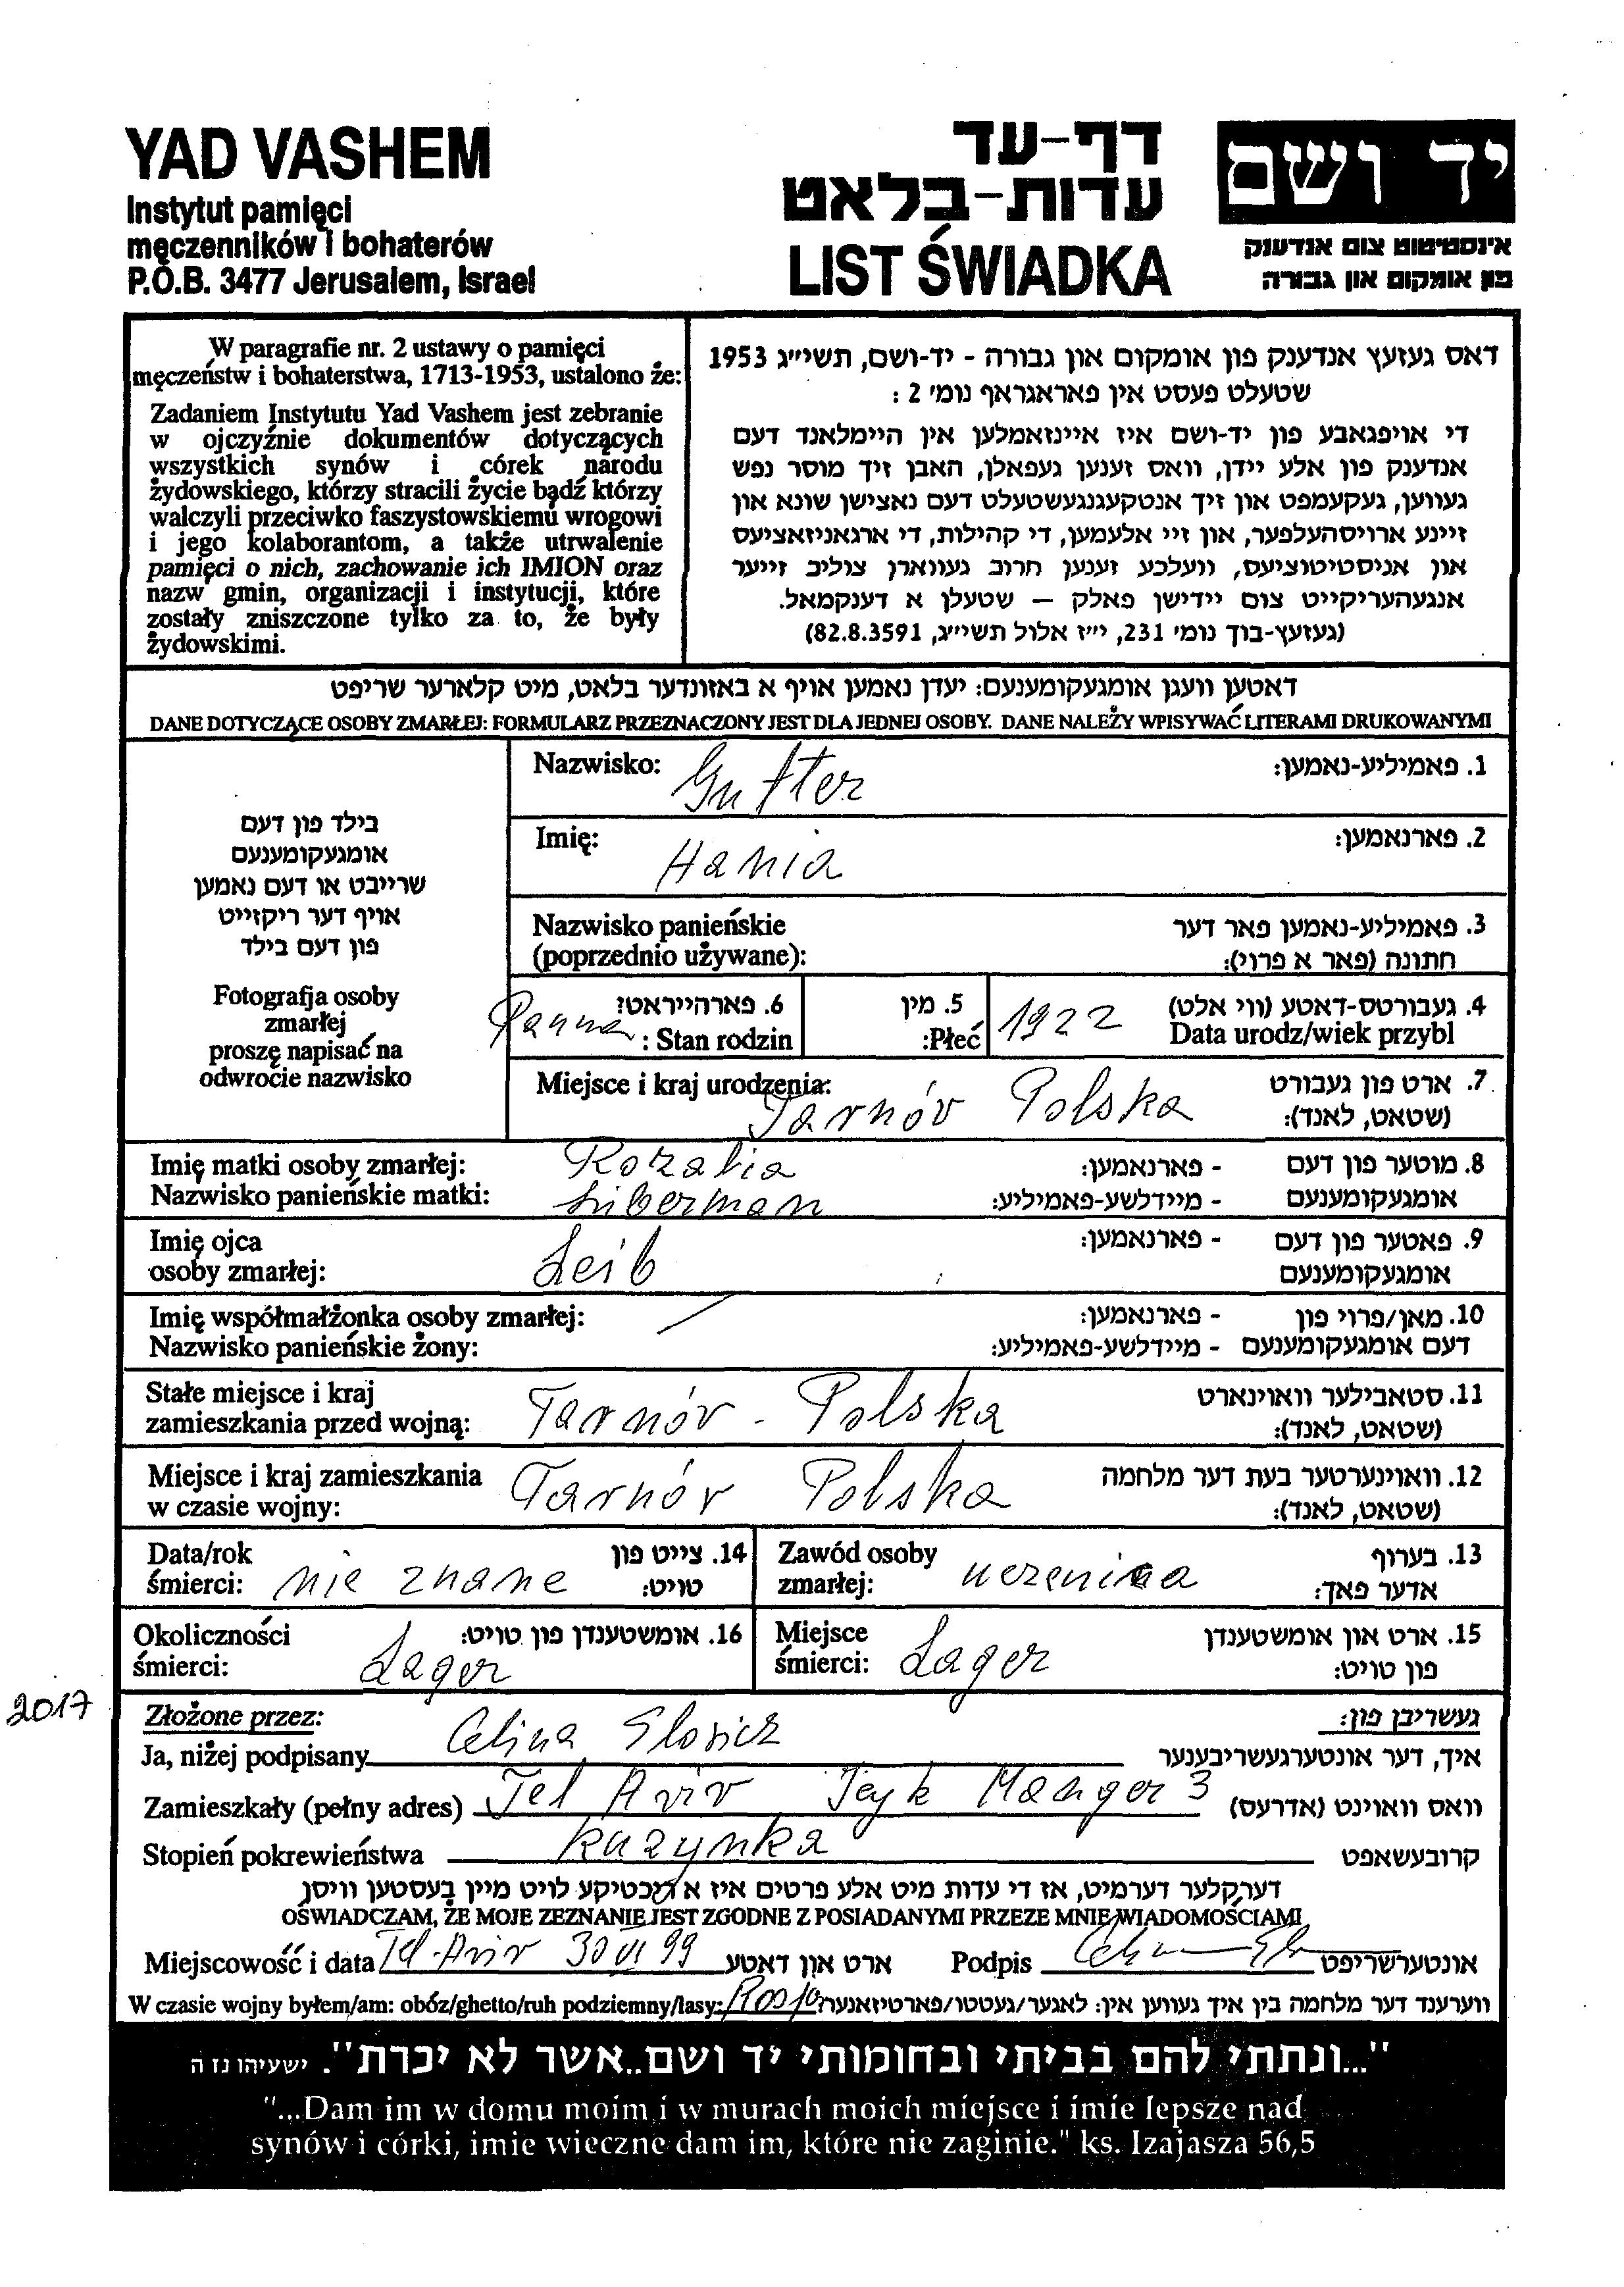 YAD VASHEM
Instytut pamięci
męczenników i bohaterów
P.O.B. 3477 Jerusalem, Israel
דף-עד
עדות-בלאט
LIST ŚWIADKA
יד ושם
אינסטיטוט צום אנדענק
פון אומקום און גבורה
W paragrafie nr. 2 ustawy o pamięci
męczeństw i bohaterstwa, 1713-1953, ustalono że:
Zadaniem Instytutu Yad Vashem jest zebranie
w ojczyźnie dokumentów dotyczących
wszystkich synów i córek narodu
żydowskiego, którzy stracili życie bądź którzy
walczyli przeciwko faszystowskiemu wrogowi
i jego kolaborantom, a także utrwalenie
pamięci o nich, zachowanie ich IMION oraz
nazw gmin, organizacji i instytucji, które
zostały zniszczone tylko za to, że były
żydowskimi.
דאס געזעץ אנדענק פון אומקום און גבורה - יד-ושם, תשי״ג 1953
שטעלט פעסט אין פאראגראף נומ׳ 2 :
די אויפגאבע פון יד-ושם איז איינזאמלען אין היימלאנד דעם
אנדענק פון אלע יידן, וואס זענען געפאלן, האבן זיך מוסר נפש
געווען, געקעמפט און זיך אנטקעגנגעשטעלט דעם נאצישן שונא און
זיינע ארויסהעלפער, און זיי אלעמען, די קהילות, די ארגאניזאציעס
און אניסטיטוציעס, וועלכע זענען חרוב געווארן צוליב זייער
אנגעהעריקייט צום יידישן פאלק – שטעלן א דענקמאל.
(געזעץ-בוך נומ׳ 231, י״ז אלול תשי״ג, 82.8.3591)
דאטען וועגן אומגעקומענעם: יעדן נאמען אויף א באזונדער בלאט, מיט קלארער שריפט
DANE DOTYCZĄCE OSOBY ZMARŁEJ: FORMULARZ PRZEZNACZONY JEST DLA JEDNEJ OSOBY. DANE NALEŻY WPISYWAĆ LITERAMI DRUKOWANYMI
בילד פון דעם
אומגעקומענעם
שרייבט או דעם נאמען
אויף דער ריקזייט
פון דעם בילד
Fotografja osoby
zmarłej
proszę napisać na
odwrocie nazwisko
Nazwisko: Gutter 1. פאמיליע-נאמען:
Imię: Hania 2. פארנאמען:
Nazwisko panieńskie 3. פאמיליע-נאמען פאר דער
(poprzednio używane): חתונה (פאר א פרוי):
Panna 6. פארהייראט? 5. מין 1922 4. געבורטס-דאטע (ווי אלט)
: Stan rodzin :Płeć Data urodz/wiek przybl
Miejsce i kraj urodzenia: Tarnów Polska 7. ארט פון געבורט
(שטאט, לאנד):
Imię matki osoby zmarłej: Rozalia - פארנאמען: 8. מוטער פון דעם
Nazwisko panieńskie matki: Liberman - מיידלשע-פאמיליע: אומגעקומענעם
Imię ojca - פארנאמען: 9. פאטער פון דעם
osoby zmarłej: Leib אומגעקומענעם
Imię współmałżonka osoby zmarłej: - פארנאמען: 10. מאן/פרוי פון
Nazwisko panieńskie żony: - מיידלשע-פאמיליע: דעם אומגעקומענעם
Stałe miejsce i kraj 11. סטאבילער וואוינארט
zamieszkania przed wojną: Tarnów - Polska (שטאט, לאנד):
Miejsce i kraj zamieszkania 12. וואוינערטער בעת דער מלחמה
w czasie wojny: Tarnów Polska (שטאט, לאנד):
Data/rok 14. צייט פון Zawód osoby 13. בערוף
śmierci: nie znane טויט: zmarłej: uczenica אדער פאך:
Okoliczności 16. אומשטענדן פון טויט: Miejsce 15. ארט און אומשטענדן
śmierci: Lager śmierci: Lager פון טויט:
2017
Złożone przez: געשריבן פון:
Ja, niżej podpisany Celina איך, דער אונטערגעשריבענער
Zamieszkały (pełny adres) Tel Aviv Manger 3 וואס וואוינט (אדרעס)
Stopień pokrewieństwa kuzynka קרובעשאפט
דערקלער דערמיט, אז די עדות מיט אלע פרטים איז א ריכטיקע לויט מיין בעסטען וויסן
OŚWIADCZAM, ŻE MOJE ZEZNANIE JEST ZGODNE Z POSIADANYMI PRZEZE MNIE WIADOMOŚCIAMI
Miejscowość i data Tel-Aviv 30 VI 99 ארט און דאטע Podpis אונטערשריפט
W czasie wojny byłem/am: obóz/ghetto/ruh podziemny/lasy: Rosja ווערענד דער מלחמה בין איך געווען אין: לאגער/געטטו/פארטיזאנער?
"...ונתתי להם בביתי ובחומותי יד ושם..אשר לא יכרת". ישעיהו נז ה
"...Dam im w domu moim i w murach moich miejsce i imie lepsze nad
synów i córki, imie wieczne dam im, które nie zaginie." ks. Izajasza 56,5